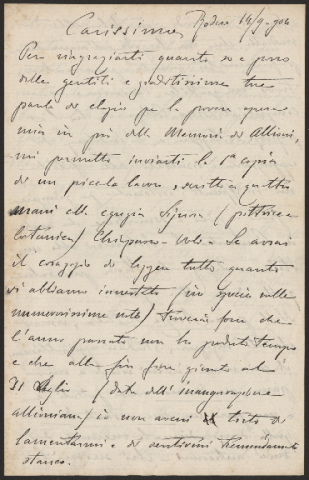 Rodoretto 14/9-904
Carissimo,
Per ringraziarti quanto so e posso
delle gentili e graditissime tue
parole di elogio per la povera opera
mia in pro della Memoria di Allioni,
mi permetto inviarti la 1ª copia
di un piccolo lavoro, scritto a quattro
mani colla egregia Signora (pittrice e
botanica) - Se avrai
il coraggio di leggere tutto quanto
vi abbiamo (in specie nelle
numerosissime note) forse che
l'anno passato non ho perduto tempo
e che alla fin fine giunto al
31 luglio - (data dell'inaugurazione
allioniana) io non avevi torto di
lamentarmi e di sentirmi tremendamente
stanco.